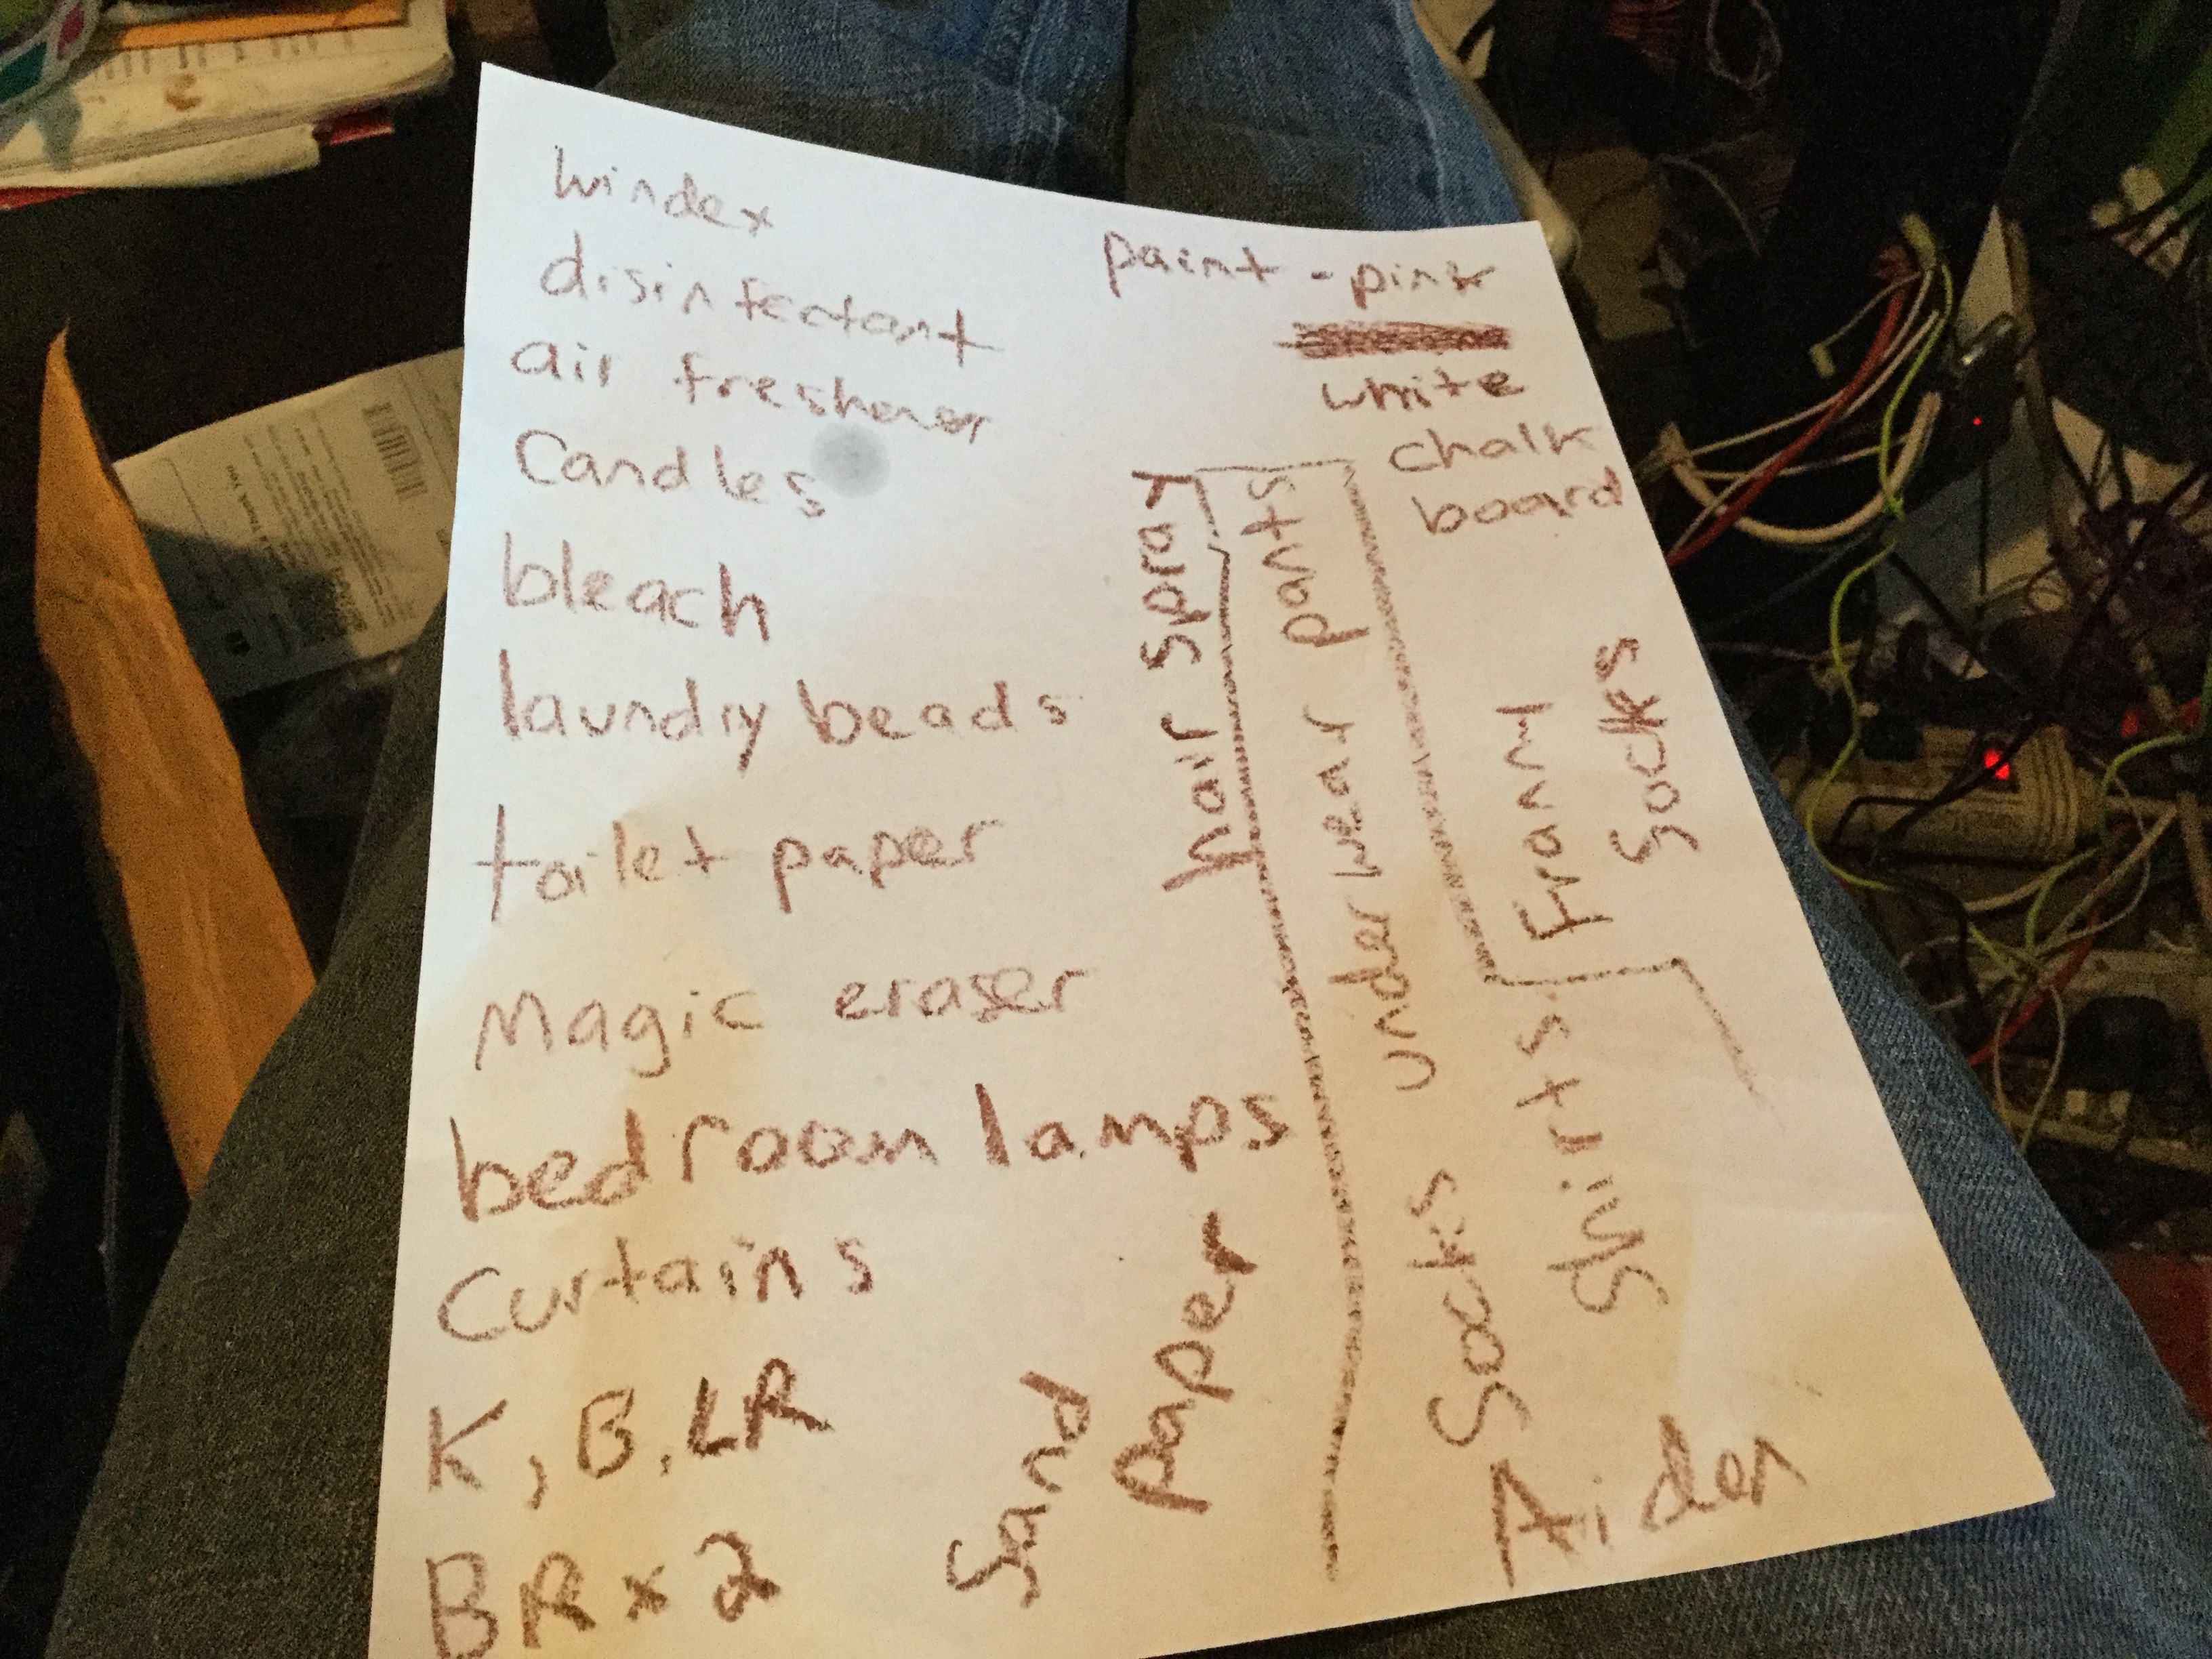 windex
disinfectant
air freshener
Candles
bleach
laundry beads
toilet paper
Magic eraser
bedroom lamps
Curtains
K, B, LR
BR x 2
Sand
paper
hair spray
paint - pink
white
chalk
board
Aiden
Socks
under wear
pants
Shirts
Franny
Socks
Thank You